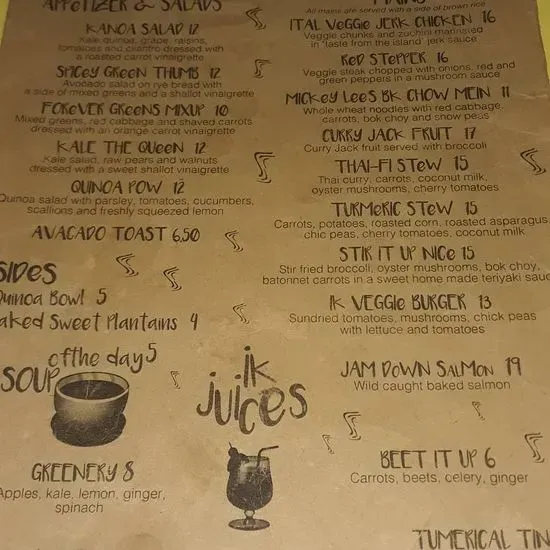 APPETIZER & SALADS
KANOA SALAD 12
Kale quinoa, grape, raisins,
tomatoes and cilantro dressed with
a roasted carrot vinaigrette
SPICEY GREEN THUMB 12
Avocado salad on rye bread with
a side of mixed greens and a shallot vinaigrette
FOREVER GREENS MIXUP 10
Mixed greens, red cabbage and shaved carrots
dressed with an orange carrot vinaigrette
KALE THE QUEEN 12
Kale salad, raw pears and walnuts
dressed with a sweet shallot vinaigrette
QUINOA POW 12
Quinoa salad with parsley, tomatoes, cucumbers,
scallions and freshly squeezed lemon
AVACADO TOAST 6.50
SIDES
Quinoa Bowl 5
aked Sweet Plantains 4
SOUP of the day 5
MAINS
All mains are served with a side of brown rice
ITAL VEGGIE JERK CHICKEN 16
Veggie chunks and zucchini marinated
in 'taste from the island' jerk sauce
RED STEPPER 16
Veggie steak chopped with onions, red and
green peppers in a mushroom sauce
MICKEY LEES BK CHOW MEIN 11
Whole wheat noodles with red cabbage,
carrots, bok choy and snow peas
CURRY JACK FRUIT 17
Curry Jack fruit served with broccoli
THAI-FI STEW 15
Thai curry, carrots, coconut milk,
oyster mushrooms, cherry tomatoes
TURMERIC STEW 15
Carrots, potatoes, roasted corn, roasted asparagus,
chic peas, cherry tomatoes, coconut milk
STIR IT UP NICE 15
Stir fried broccoli, oyster mushrooms, bok choy,
batonnet carrots in a sweet home made teriyaki sauce
IK VEGGIE BURGER 13
Sundried tomatoes, mushrooms, chick peas
with lettuce and tomatoes
JAM DOWN SALMON 19
Wild caught baked salmon
ik
juices
GREENERY 8
Apples, kale, lemon, ginger,
spinach
BEET IT UP 6
Carrots, beets, celery, ginger
TUMERICAL TIN